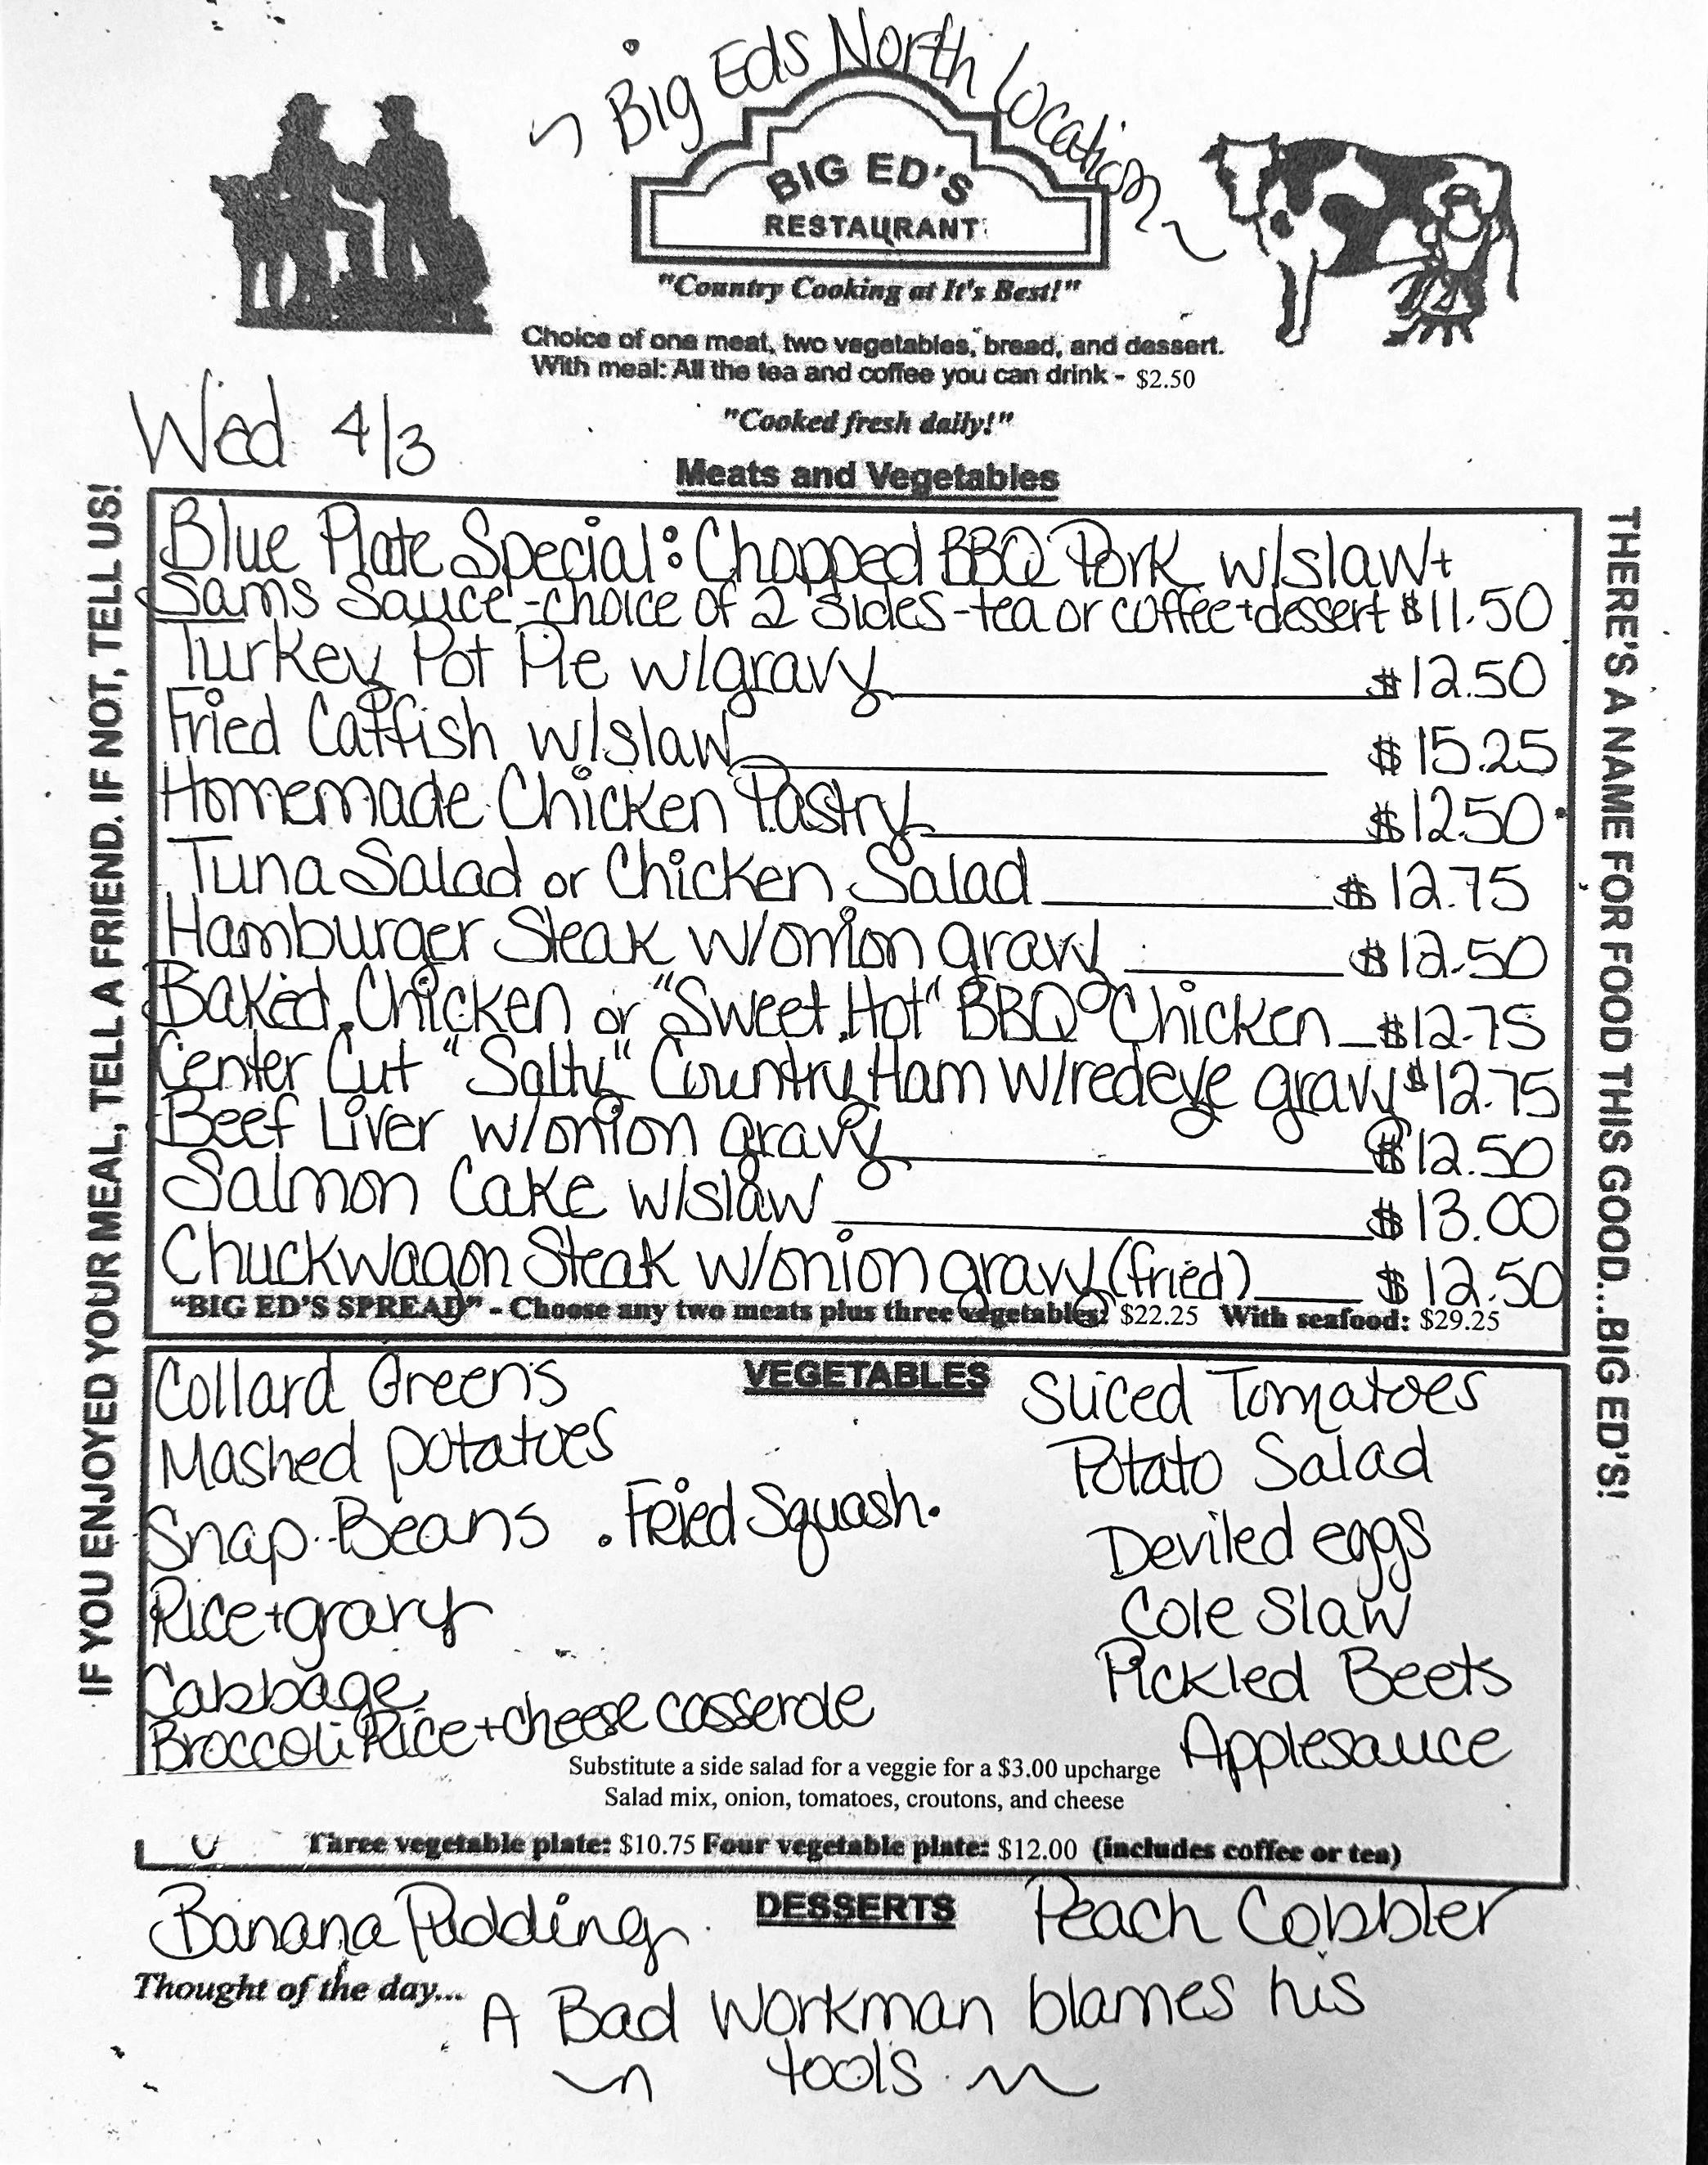 ~ Big Eds North Location ~
BIG ED'S
RESTAURANT
"Country Cooking at It's Best!"
Choice of one meat, two vegetables, bread, and dessert.
With meal: All the tea and coffee you can drink - $2.50
"Cooked fresh daily!"
Wed 4/3
Meats and Vegetables
IF YOU ENJOYED YOUR MEAL, TELL A FRIEND. IF NOT, TELL US!
Blue Plate Special: Chopped BBQ Pork w/slaw+
Sams Sauce - choice of 2 sides - tea or coffee + dessert $11.50
Turkey Pot Pie w/gravy $12.50
Fried Catfish w/slaw $15.25
Homemade Chicken Pastry $12.50
Tuna Salad or Chicken Salad $12.75
Hamburger Steak w/onion gravy $12.50
Baked Chicken or "Sweet Hot" BBQ Chicken $12.75
Center Cut "Salty" Country Ham w/redeye gravy $12.75
Beef Liver w/onion gravy $12.50
Salmon Cake w/slaw $13.00
Chuckwagon Steak w/onion gravy (fried) $12.50
"BIG ED'S SPREAD" - Choose any two meats plus three vegetables: $22.25 With seafood: $29.25
THERE'S A NAME FOR FOOD THIS GOOD...BIG ED'S!
VEGETABLES
Collard Greens
Mashed potatoes
Snap Beans
Rice + gravy
Cabbage
Broccoli Rice + cheese casserole
. Fried Squash.
Sliced Tomatoes
Potato Salad
Deviled eggs
Cole Slaw
Pickled Beets
Applesauce
Substitute a side salad for a veggie for a $3.00 upcharge
Salad mix, onion, tomatoes, croutons, and cheese
Three vegetable plate: $10.75 Four vegetable plate: $12.00 (includes coffee or tea)
DESSERTS
Banana Pudding
Peach Cobbler
Thought of the day...
A Bad Workman blames his
~ tools ~